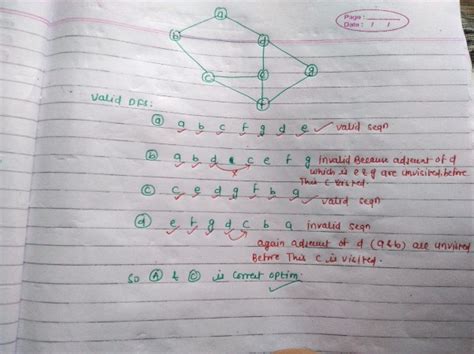 Page:
Date: / /
a
b
d
c
e
g
f
Valid DFS:
(a) a b c f g d e ✓ valid seqn
(b) a b d c e f g Invalid Because adjacent of d
which is e & g are unvisited before
This C Visited.
(c) c e d g f b a ✓ valid seqn
(d) e f g d c b a invalid seqn
again adjacent of d (a&b) are unvisited
Before This C is visited.
So (A) & (C) is correct option.